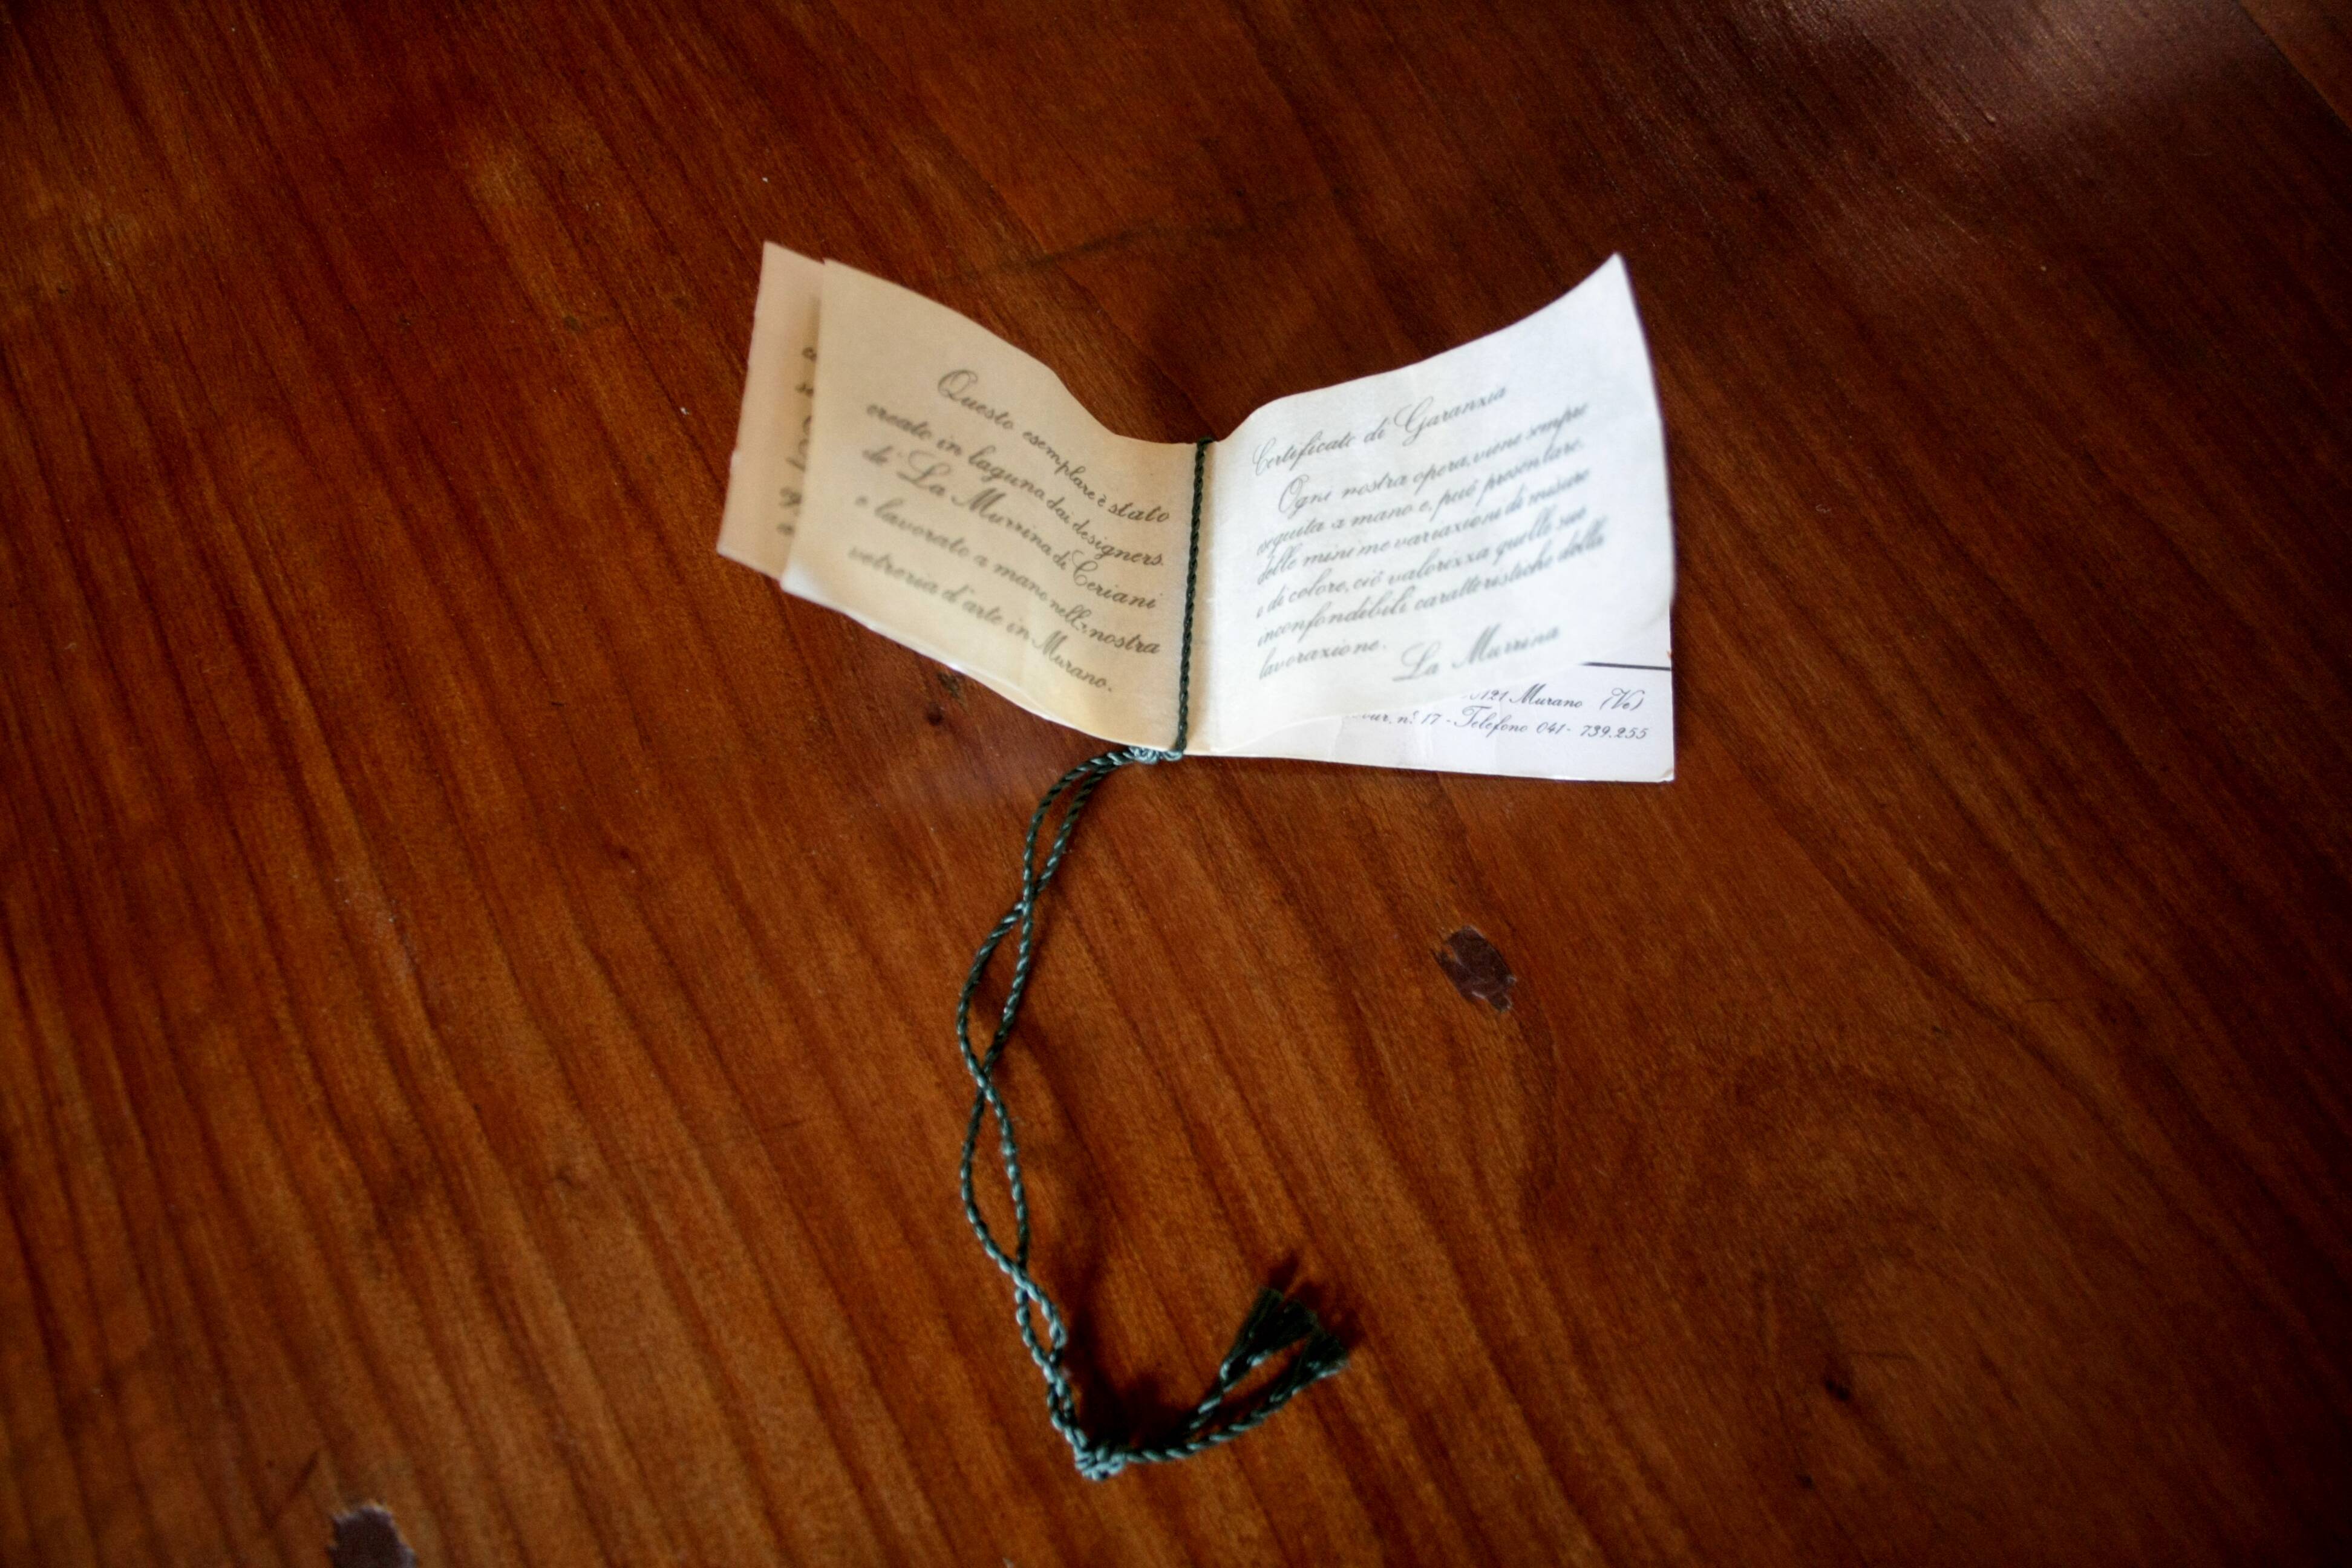 Questo esemplare è stato
creato in laguna dai designers.
de La Murrina di Ceriani
e lavorato a mano nella nostra
vetreria d'arte in Murano.
Certificato di Garanzia
Ogni nostra opera, viene sempre
eseguita a mano e, può presentare.
delle minime variazioni di misure
e di colore, ciò valorizza quelle sue
inconfondibili caratteristiche della
lavorazione.
La Murrina
Murano (Ve)
n.° 17 - Telefono 041 - 739.255